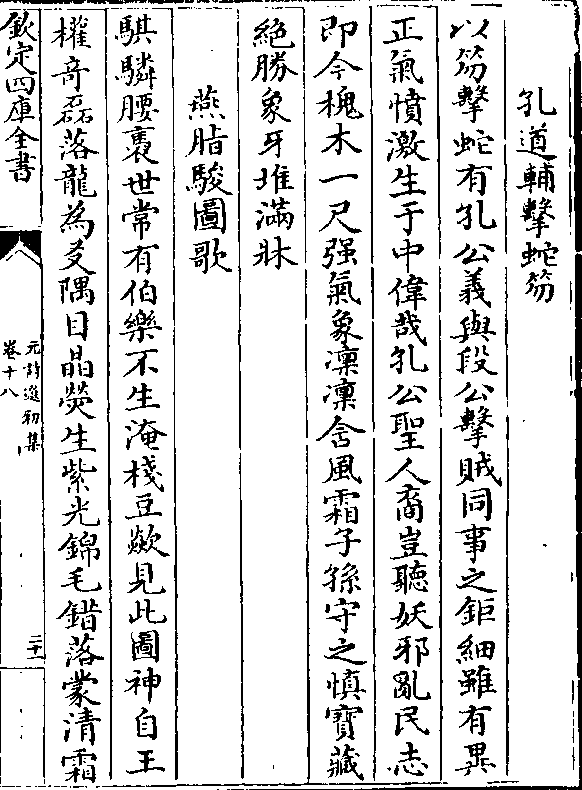 孔道輔擊蛇笏
以笏擊蛇有孔公義與段公擊賊同事之鉅細雖有異
正氣憤激生于中偉哉孔公聖人裔豈聽妖邪亂民志
即今槐木一尺强氣象凜凜含風霜子孫守之慎寶藏
絶勝象牙堆滿牀
燕脂駿圖歌
騏驎腰褭世常有伯樂不生淹棧豆歘見此圖神自王
權奇磊落龍為友隅目晶熒生紫光錦毛錯落蒙清霜
欽定四庫全書
元詩選初集
卷十八
二十一